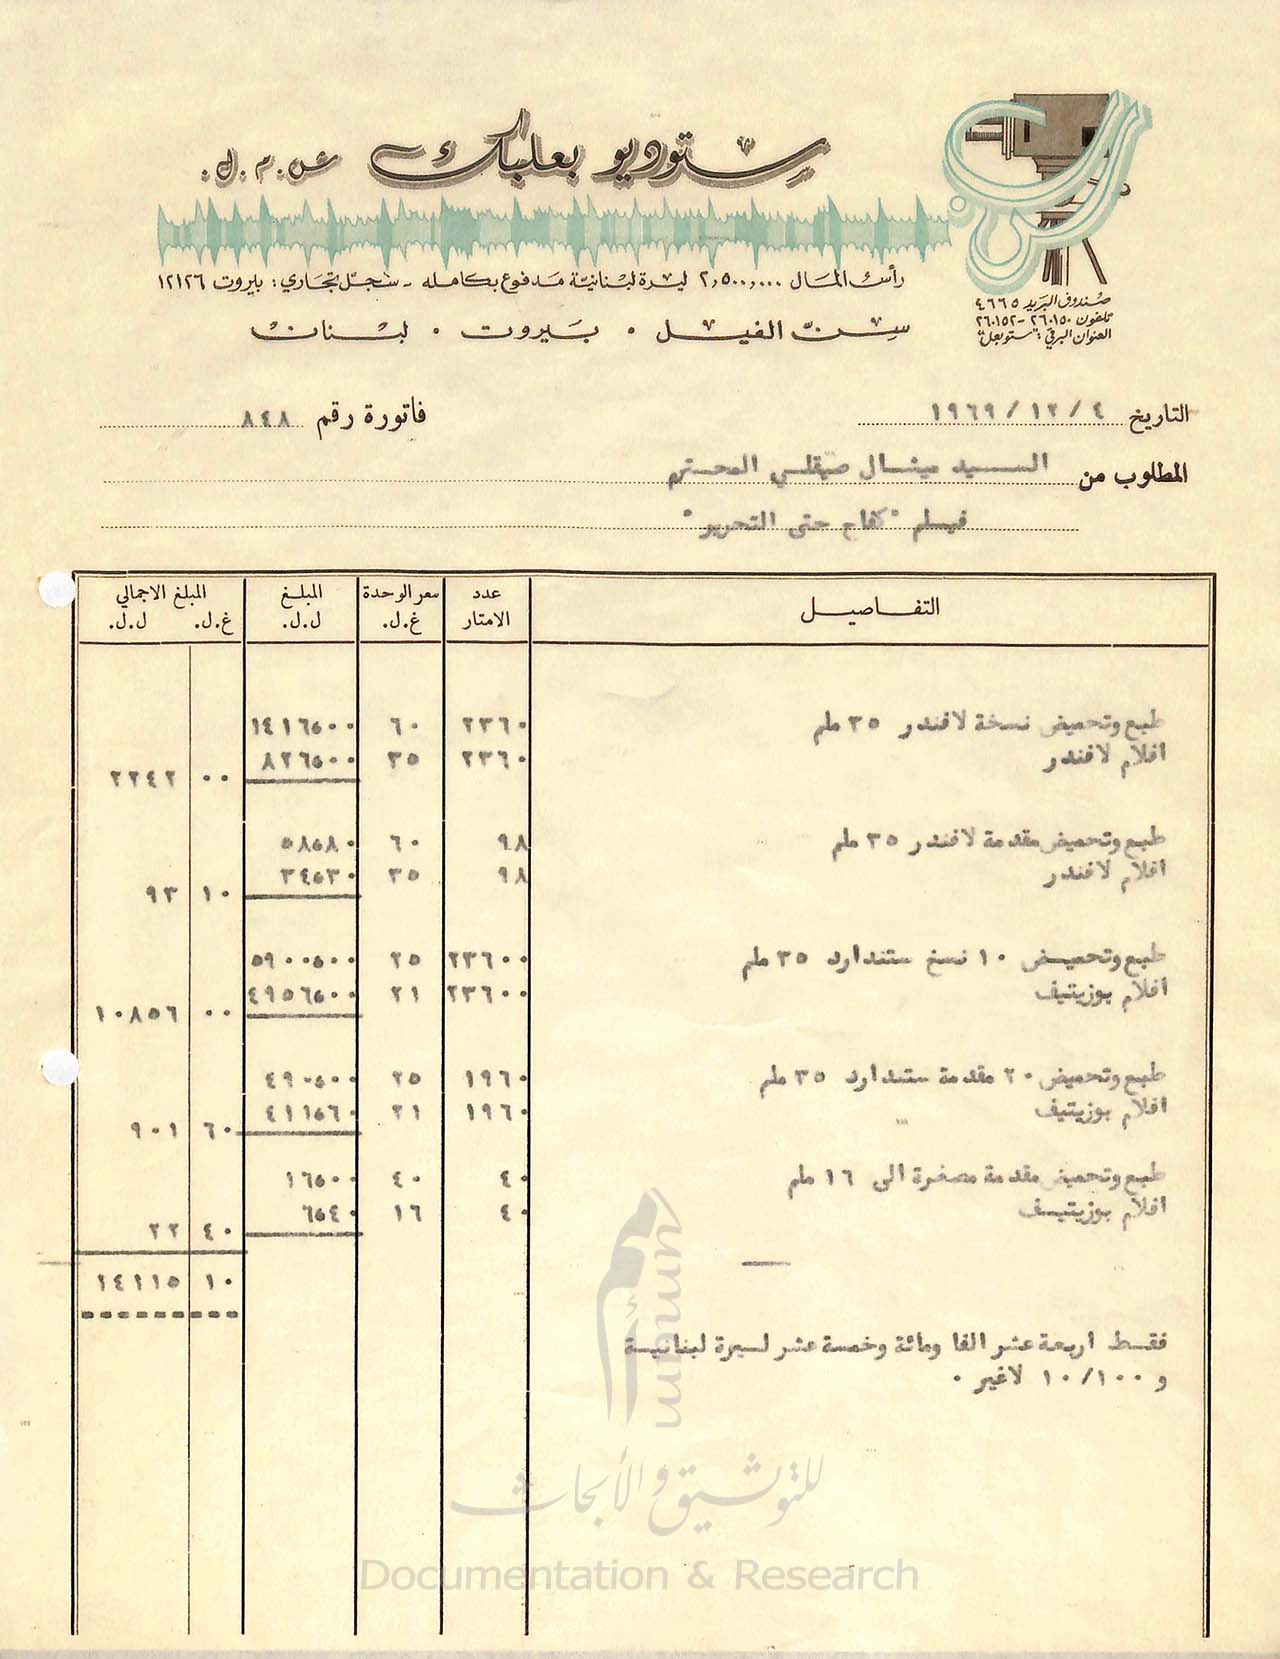 ستوديو بعلبك ش.م.ل.
رأس المال ٢,٥٠٠,٠٠٠ ليرة لبنانية مدفوع بكامله - سجل تجاري: بيروت ١٢١٢٦
سن الفيل . بيروت . لبنان
صندوق البريد ٤٦٦٥
تلفون ٢٦٠١٥٠-٢٦٠١٥٢
العنوان البرقي: "ستوبعل"
التاريخ ١٩٦٩/١٢/٤ فاتورة رقم ٨٤٨
المطلوب من السيد ميشال صيقلي المحترم
فيلم "كفاح حتى التحرير"
التفاصيل عدد الامتار سعر الوحدة غ.ل. المبلغ ل.ل. المبلغ الاجمالي غ.ل. ل.ل.
طبع وتحميض نسخة لافندر ٣٥ ملم ٢٣٦٠ ٦٠ ١٤١٦،٠٠
افلام لافندر ٢٣٦٠ ٣٥ ٨٢٦،٠٠
٠٠ ٢٢٤٢
طبع وتحميض مقدمة لافندر ٣٥ ملم ٩٨ ٦٠ ٥٨،٨٠
افلام لافندر ٩٨ ٣٥ ٣٤،٣٠
١٠ ٩٣
طبع وتحميض ١٠ نسخ ستندارد ٣٥ ملم ٢٣٦٠٠ ٢٥ ٥٩٠٠،٠٠
افلام بوزيتيف ٢٣٦٠٠ ٢١ ٤٩٥٦،٠٠
٠٠ ١٠٨٥٦
طبع وتحميض ٢٠ مقدمة ستندارد ٣٥ ملم ١٩٦٠ ٢٥ ٤٩٠،٠٠
افلام بوزيتيف ١٩٦٠ ٢١ ٤١١،٦٠
٦٠ ٩٠١
طبع وتحميض مقدمة مصغرة الى ١٦ ملم ٤٠ ٤٠ ١٦،٠٠
افلام بوزيتيف ٤٠ ١٦ ٦،٤٠
٤٠ ٢٢
١٠ ١٤١١٥
فقط اربعة عشر الفا ومائة وخمسة عشر ليرة لبنانية
و ١٠/١٠٠ لاغير .
أمم
umam
للتوثيق والأبحاث
Documentation & Research